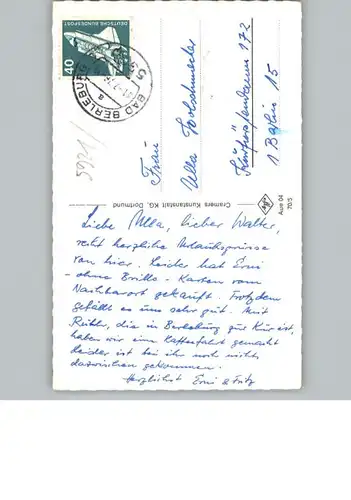 DEUTSCHE BUNDESPOST
40
BAD BERLEBURG
a
5921/
Frau
Ulla
Kurfürstendamm 172
1 Berlin 15
Cramers Kunstanstalt KG, Dortmund
Aue 04
70/5
Liebe Ulla, lieber Walter,
recht herzliche Urlaubsgrüsse
von hier. Leider hat Erni
- ohne Brille - Karten vom
Nachbarort gekauft. Trotzdem
gefällt es uns sehr gut. Mit
die in Berleburg zur Kur ist,
haben wir eine Kaffeefahrt gemacht
Leider ist bei ihr noch nichts
dazwischen gekommen.
Herzlichst Erni & Fritz